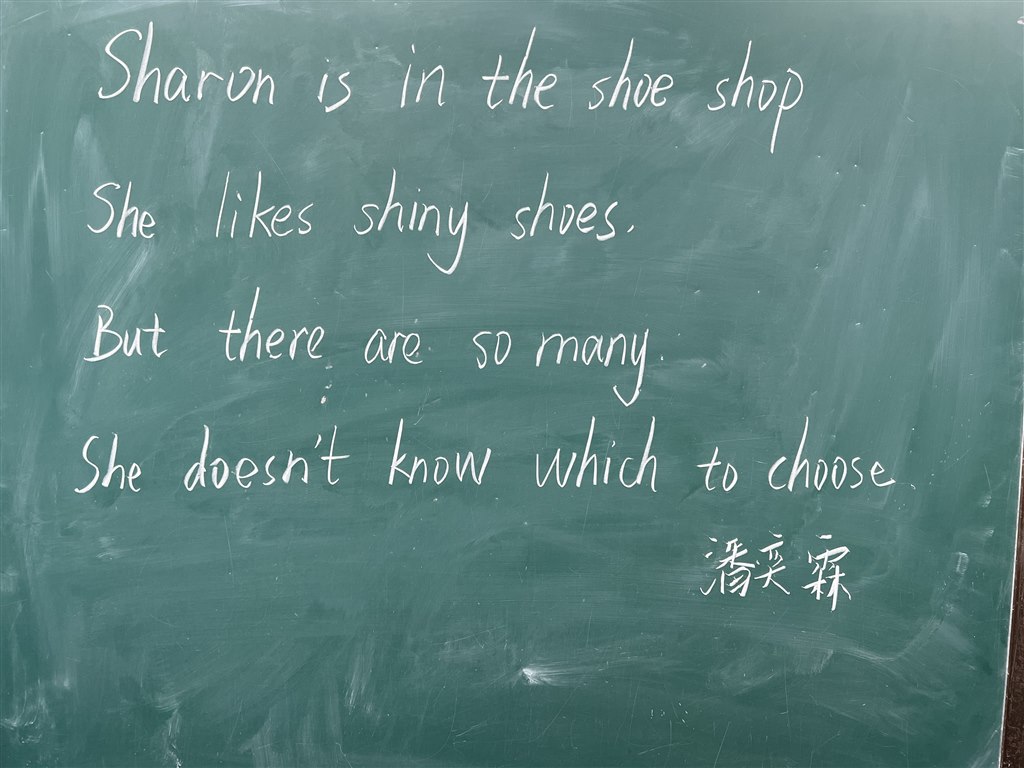 Sharon is in the shoe shop
She likes shiny shoes.
But there are so many.
She doesn't know which to choose
潘奕霖